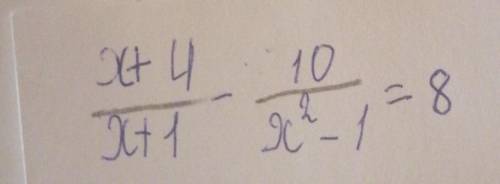 (x+4)/(x+1) - 10/(x²-1) = 8